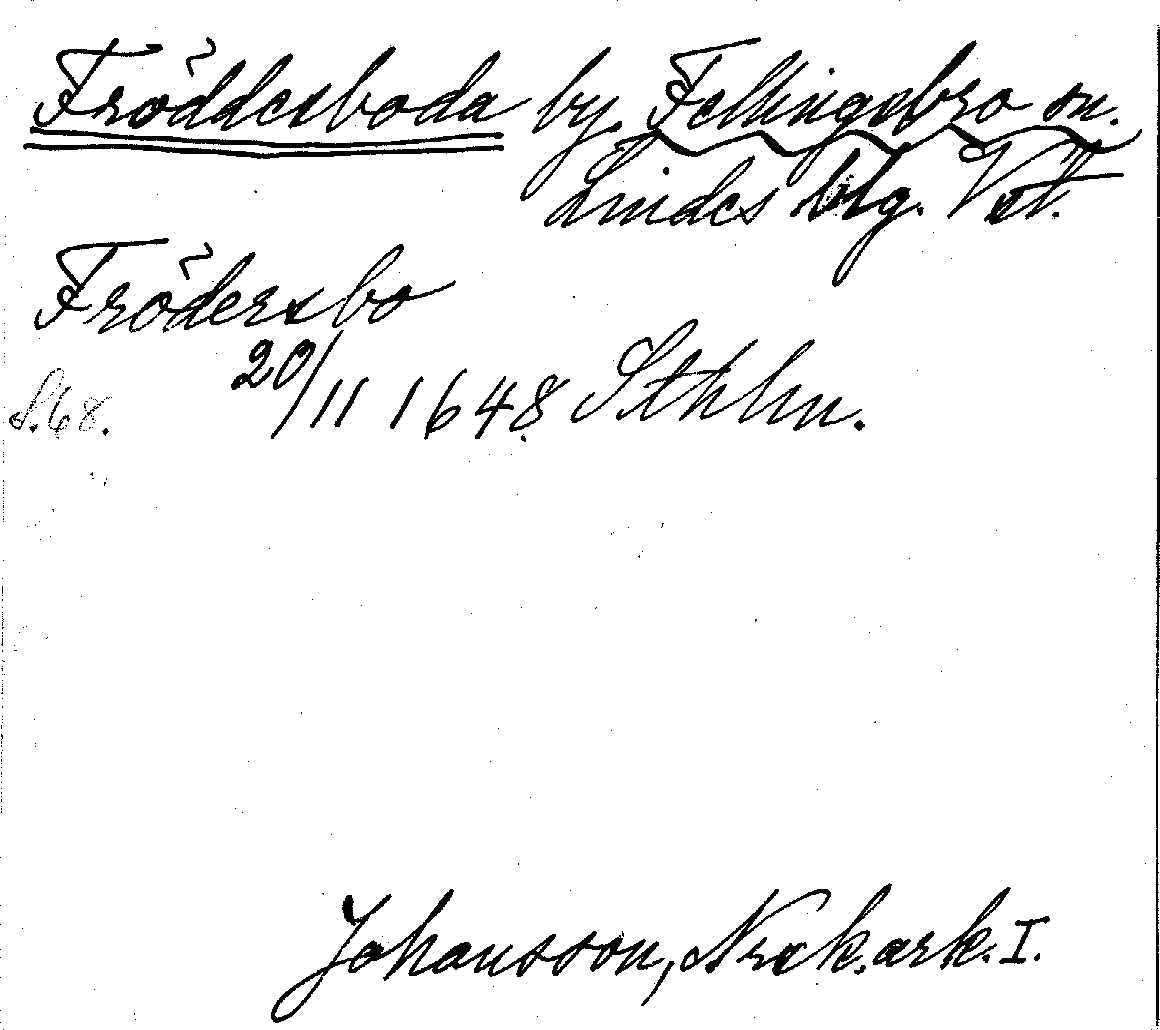 Fröddesboda by. Fellingsbro sn.
Lindes blg. Vstl.
Frödersbo
S. 68. 20/11 1648 Sthlm.
Johansson, Nrck. ark. I.